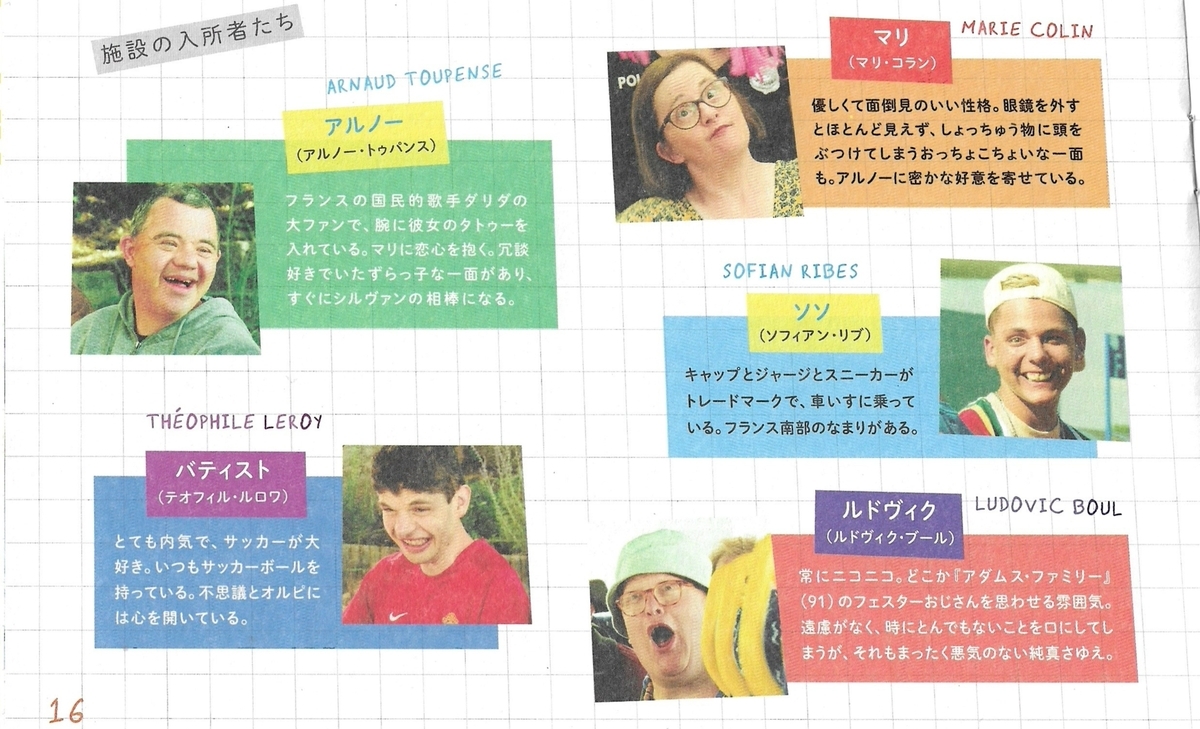 施設の入所者たち
ARNAUD TOUPENSE
アルノー
(アルノー・トゥパンス)
フランスの国民的歌手ダリダの
大ファンで、腕に彼女のタトゥーを
入れている。マリに恋心を抱く。冗談
好きでいたずらっ子な一面があり、
すぐにシルヴァンの相棒になる。
THÉOPHILE LEROY
バティスト
(テオフィル・ルロワ)
とても内気で、サッカーが大
好き。いつもサッカーボールを
持っている。不思議とオルピに
は心を開いている。
16
マリ
(マリ・コラン)
MARIE COLIN
優しくて面倒見のいい性格。眼鏡を外す
とほとんど見えず、しょっちゅう物に頭を
ぶつけてしまうおっちょこちょいな一面
も。アルノーに密かな好意を寄せている。
SOFIAN RIBES
ソソ
(ソフィアン・リブ)
キャップとジャージとスニーカーが
トレードマークで、車いすに乗って
いる。フランス南部のなまりがある。
ルドヴィク
(ルドヴィク・ブール)
LUDOVIC BOUL
常にニコニコ。どこか『アダムス・ファミリー』
(91)のフェスターおじさんを思わせる雰囲気。
遠慮がなく、時にとんでもないことを口にしてし
まうが、それもまったく悪気のない純真さゆえ。